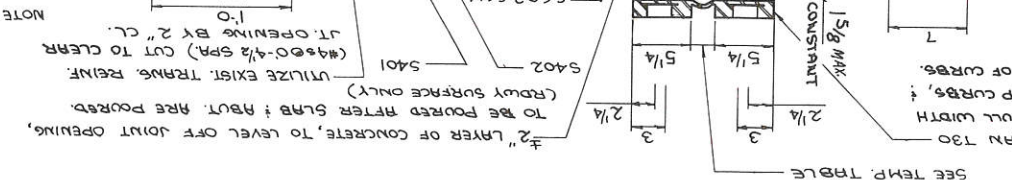 SEE TEMP. TABLE
AN 730
ULL WIDTH
P CURBS, &
OF CURBS.
3
3
2 1/4
2 1/4
5 1/4
5 1/4
7
1 5/8 MAX
CONSTANT
± 2" LAYER OF CONCRETE, TO LEVEL OFF JOINT OPENING,
TO BE POURED AFTER SLAB & ABUT. ARE POURED.
(RDWY SURFACE ONLY)
S402
S401
UTILIZE EXIST. TRANS. REINF.
(#4s@0-4 1/2 SPA.) CUT TO CLEAR
JT. OPENING BY 2" CL.
1'-0
NOTE